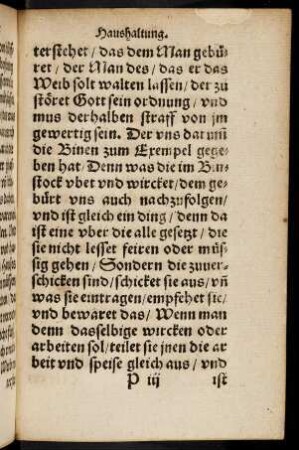 Haushaltung.
terstehet / das dem Man gebü-
ret / der Man des / das er das
Weib solt walten lassen / der zu
störet Gott sein ordnung / vnd
mus derhalben straff von jm
gewertig sein. Der vns dar vm̃
die Binen zum Exempel gege-
ben hat / Denn was die im Bin-
stock vbet vnd wircket / dem ge-
bürt vns auch nachzufolgen /
vnd ist gleich ein ding / denn da
ist eine vber die alle gesetzt / die
sie nicht lesset feiren oder müs-
sig gehen / Sondern die zuuer-
schicken sind / schicket sie aus / vñ
was sie eintragen / empfehet sie /
vnd bewaret das / Wenn man
denn dasselbige wircken oder
arbeiten sol / teilet sie jnen die ar
beit vnd speise gleich aus / vnd
P iij ist